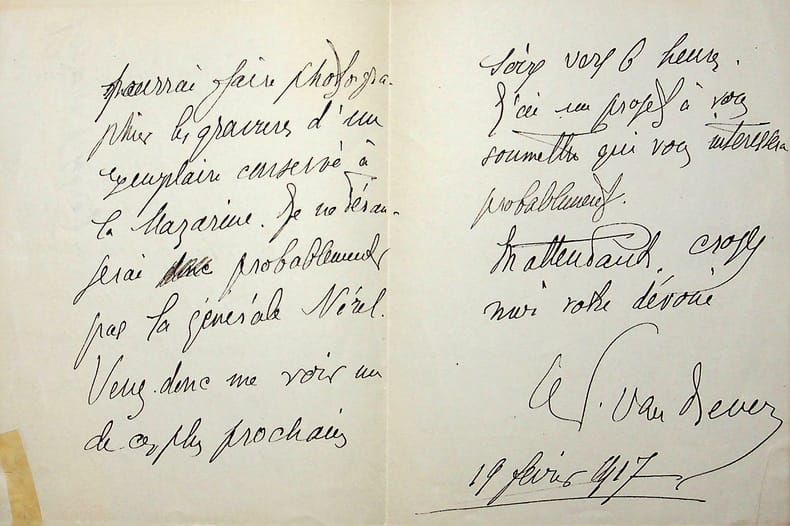 pourrai faire photogra-
phier les gravures d'un
exemplaire conservé à
la Mazarine. Je ne déran-
gerai donc probablement
pas la générale Nérel.
Venez donc me voir un
de ces plus prochains
soirs vers 6 heures.
J'ai un projet à vous
soumettre qui vous intéressera
probablement.
En attendant, croyez
moi votre dévoué
Van
19 févier 1917